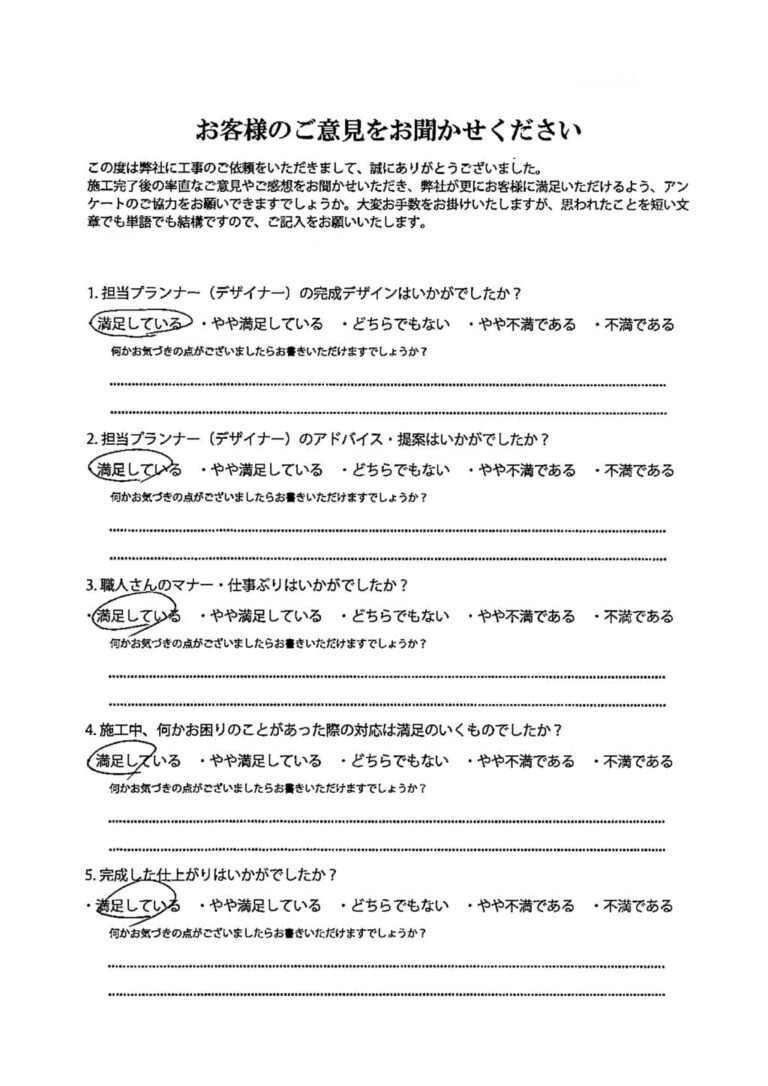 お客様のご意見をお聞かせください
この度は弊社に工事のご依頼をいただきまして、誠にありがとうございました。
施工完了後の率直なご意見やご感想をお聞かせいただき、弊社が更にお客様に満足いただけるよう、アン
ケートのご協力をお願いできますでしょうか。大変お手数をお掛けいたしますが、思われたことを短い文
章でも単語でも結構ですので、ご記入をお願いいたします。
1. 担当プランナー（デザイナー）の完成デザインはいかがでしたか？
・満足している ・やや満足している ・どちらでもない ・やや不満である ・不満である
何かお気づきの点がございましたらお書きいただけますでしょうか？
2. 担当プランナー（デザイナー）のアドバイス・提案はいかがでしたか？
・満足している ・やや満足している ・どちらでもない ・やや不満である ・不満である
何かお気づきの点がございましたらお書きいただけますでしょうか？
3. 職人さんのマナー・仕事ぶりはいかがでしたか？
・満足している ・やや満足している ・どちらでもない ・やや不満である ・不満である
何かお気づきの点がございましたらお書きいただけますでしょうか？
4. 施工中、何かお困りのことがあった際の対応は満足のいくものでしたか？
・満足している ・やや満足している ・どちらでもない ・やや不満である ・不満である
何かお気づきの点がございましたらお書きいただけますでしょうか？
5. 完成した仕上がりはいかがでしたか？
・満足している ・やや満足している ・どちらでもない ・やや不満である ・不満である
何かお気づきの点がございましたらお書きいただけますでしょうか？